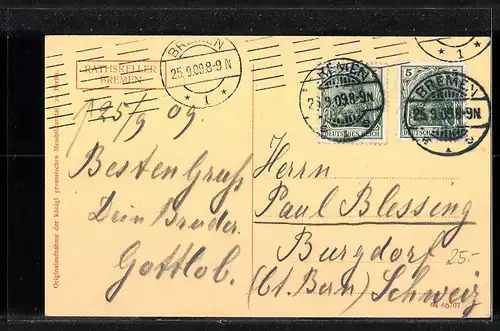 RATHSKELLER
BREMEN
BREMEN
25.9.09.8-9N
* 1 *
* 1 *
BREMEN
25.9.09.8-9N
BREMEN
25.9.09.8-9N
5
DEUTSCHES REICH
DEUTSCHES
25/9 09.
Besten Gruss
Dein Bruder
Gottlob.
Herrn
Paul Blessing
Burgdorf
(Ct. Bern) Schweiz
25.-
Originalaufnahme der königl. preussischen Messbildanstalt zu Berlin.
66707